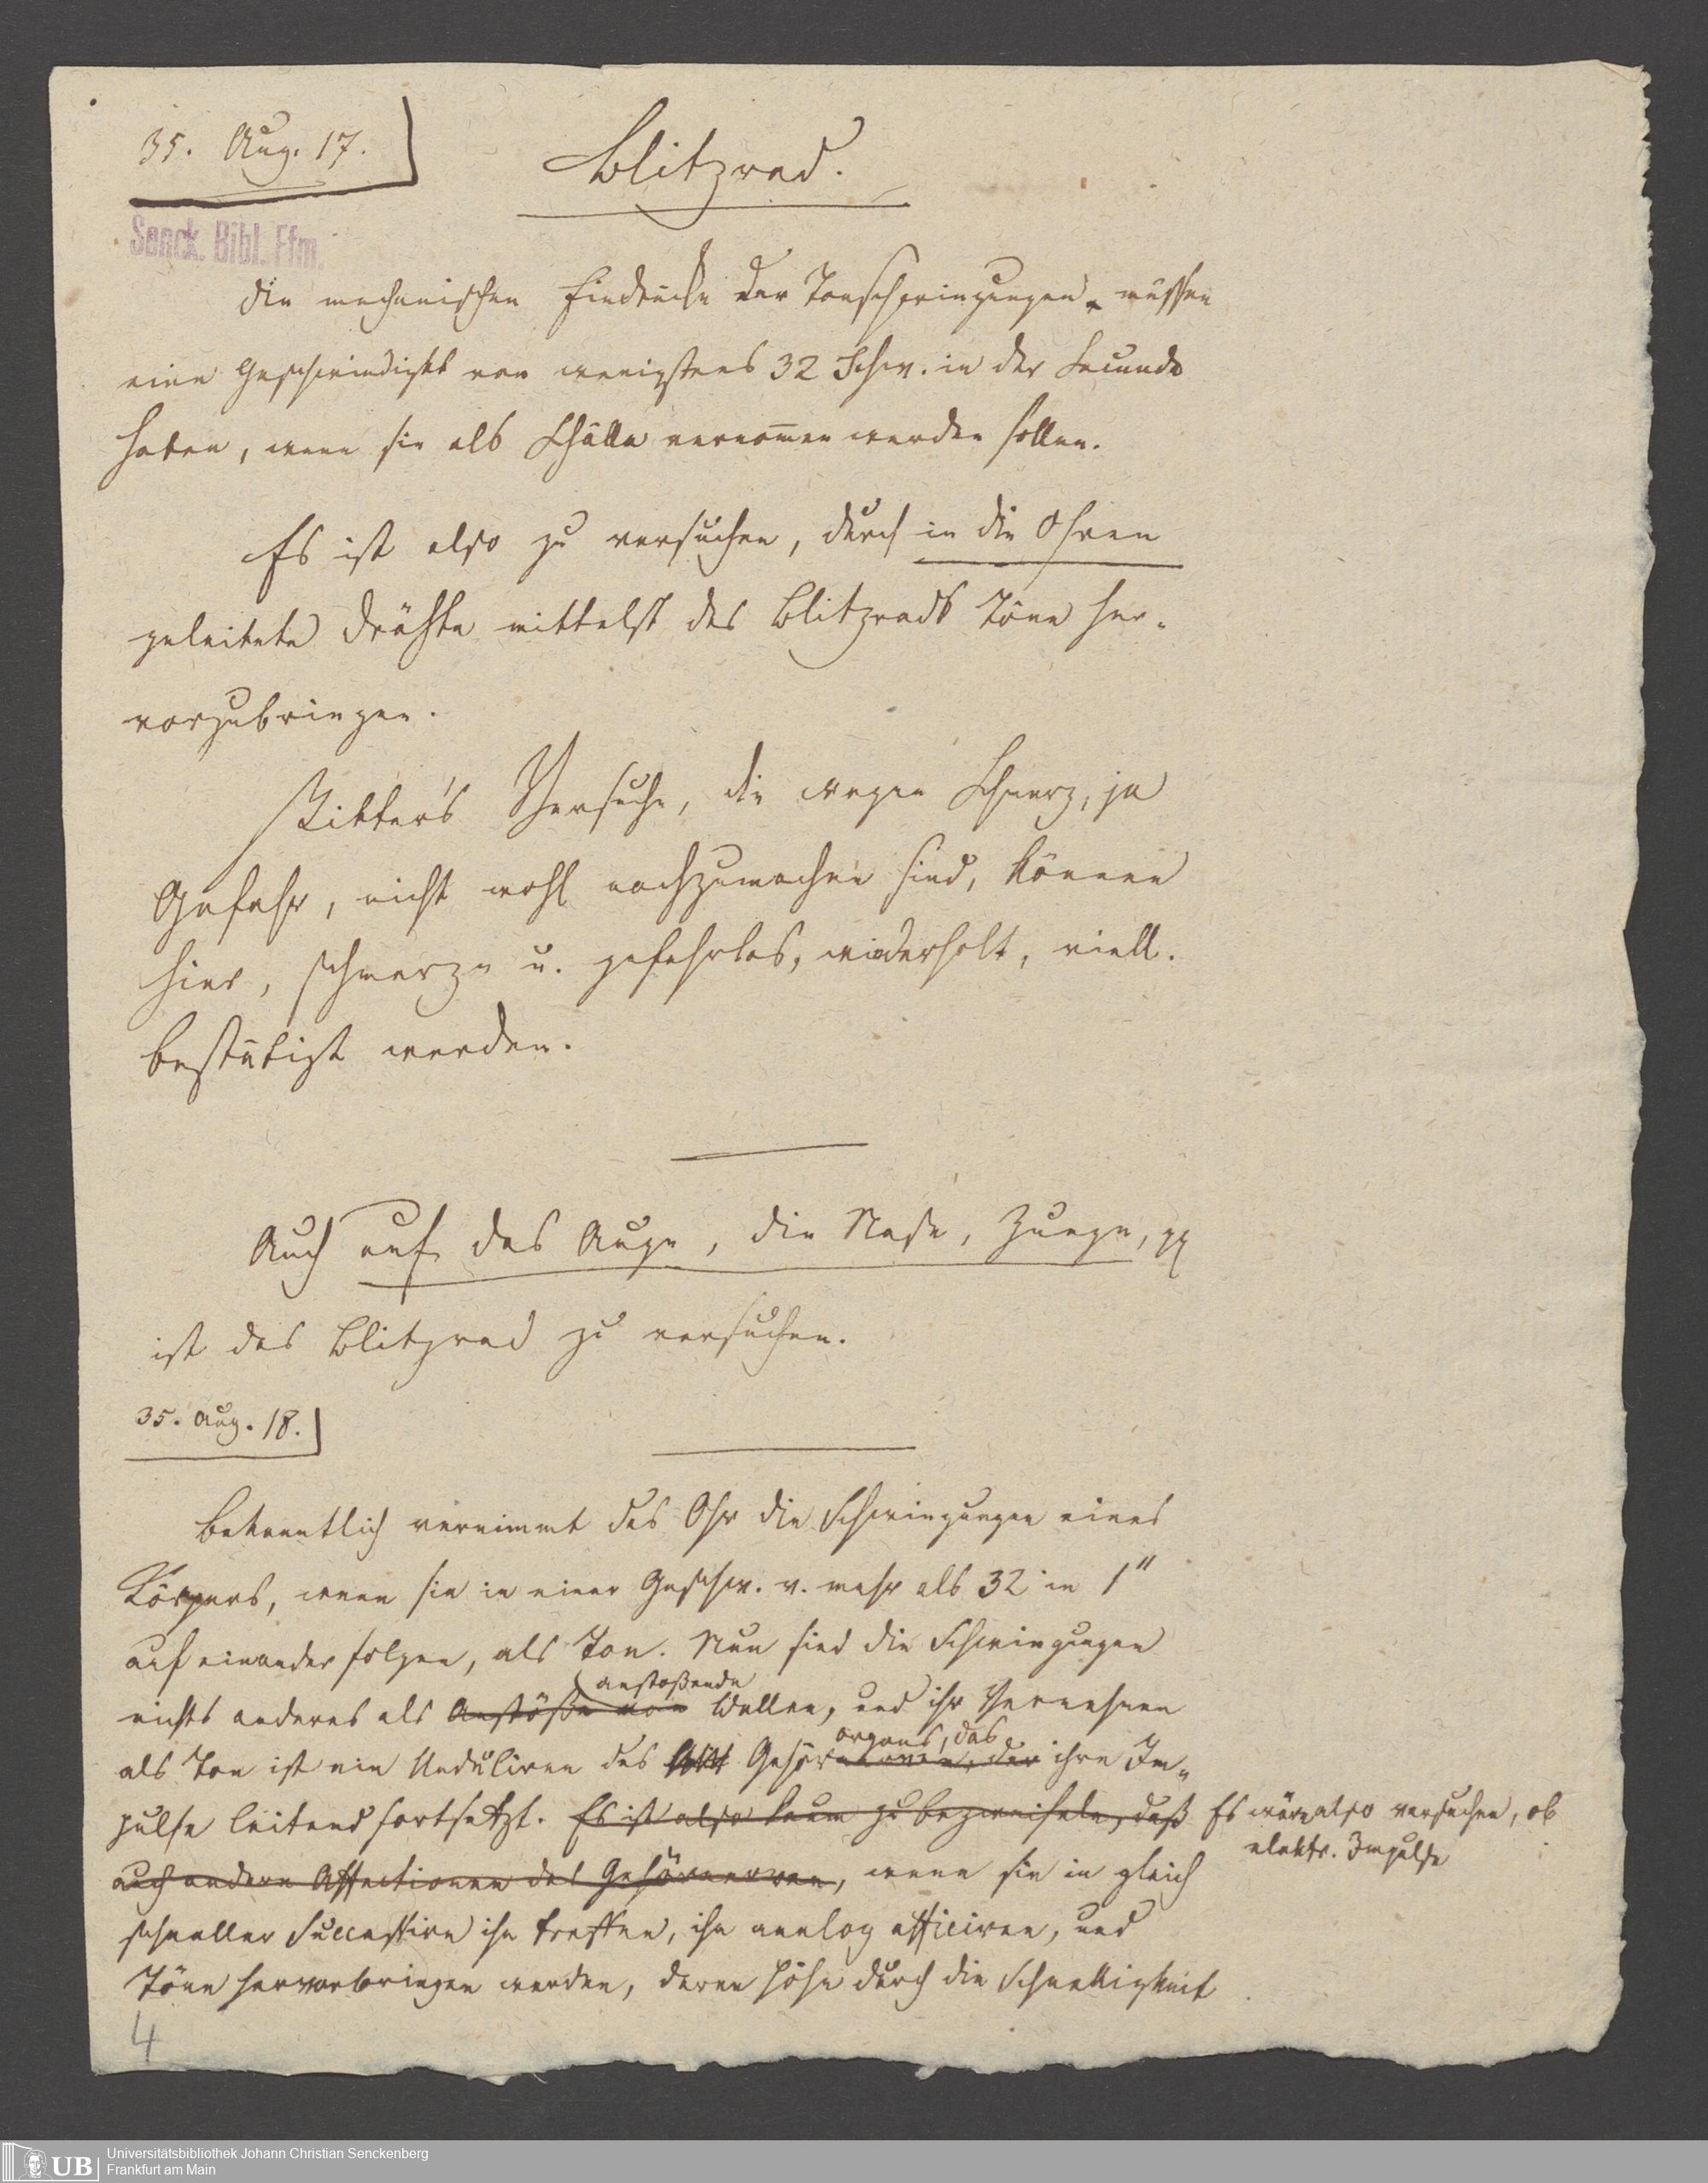 35. Aug. 17.
Blitzrad.
Senck. Bibl. Ffm.
Die mechanischen Eindrücke der Tonschwingungen müssen
eine Geschwindigkt von wenigstens 32 Schw. in der Secunde
haben, wenn sie als Schälle vernom̅en werden sollen.
Es ist also zu versuchen, durch in die Ohren
geleitete Dräthe mittelst des Blitzrads Töne her-
vorzubringen.
Ritter's Versuche, die wegen Schmerz, ja
Gefahr, nicht wohl nachzumachen sind, können
hier, schmerz- u. gefahrlos, wiederholt, viell.
bestätigt werden.
Auch auf das Auge, die Nase, Zunge, pp
ist das Blitzrad zu versuchen.
35. Aug. 18.
Bekanntlich vernimmt das Ohr die Schwingungen eines
Körpers, wenn sie in einer Geschw. v. mehr als 32 in 1"
auf einander folgen, als Ton. Nun sind die Schwingungen
anstoßende
nichts anderes als Anstöße von Wellen, und ihr Vernehmen
organs, das
als Ton ist ein Unduliren des Gehörnerven, der ihre Im-
pulse leitend fortsetzt. Es ist also kaum zu bezweifeln, daß
Es wäre also versuchen, ob
elektr. Impulse
auch andere Affectionen des Gehörnerven, wenn sie in gleich
schneller Succession ihn treffen, ihn analog afficiren, und
Töne hervorbringen werden, deren Höhe durch die Schnelligkeit
4
UB
Universitätsbibliothek Johann Christian Senckenberg
Frankfurt am Main